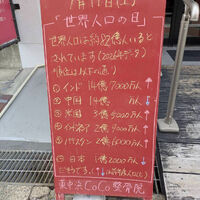 7月11日(土)
「世界人口の日」
世界人口は約82億人いると
されています(2026年データ)
①インド 14億7000万人↑
②中国 14億 万人↓
③米国 3億4000万人↑
④インドネシア 2億 000万人↑
⑤パキスタン 2億6000万人↑
⑫日本 1億2000万人↓
だそうです。
東中浜CoCo整骨院